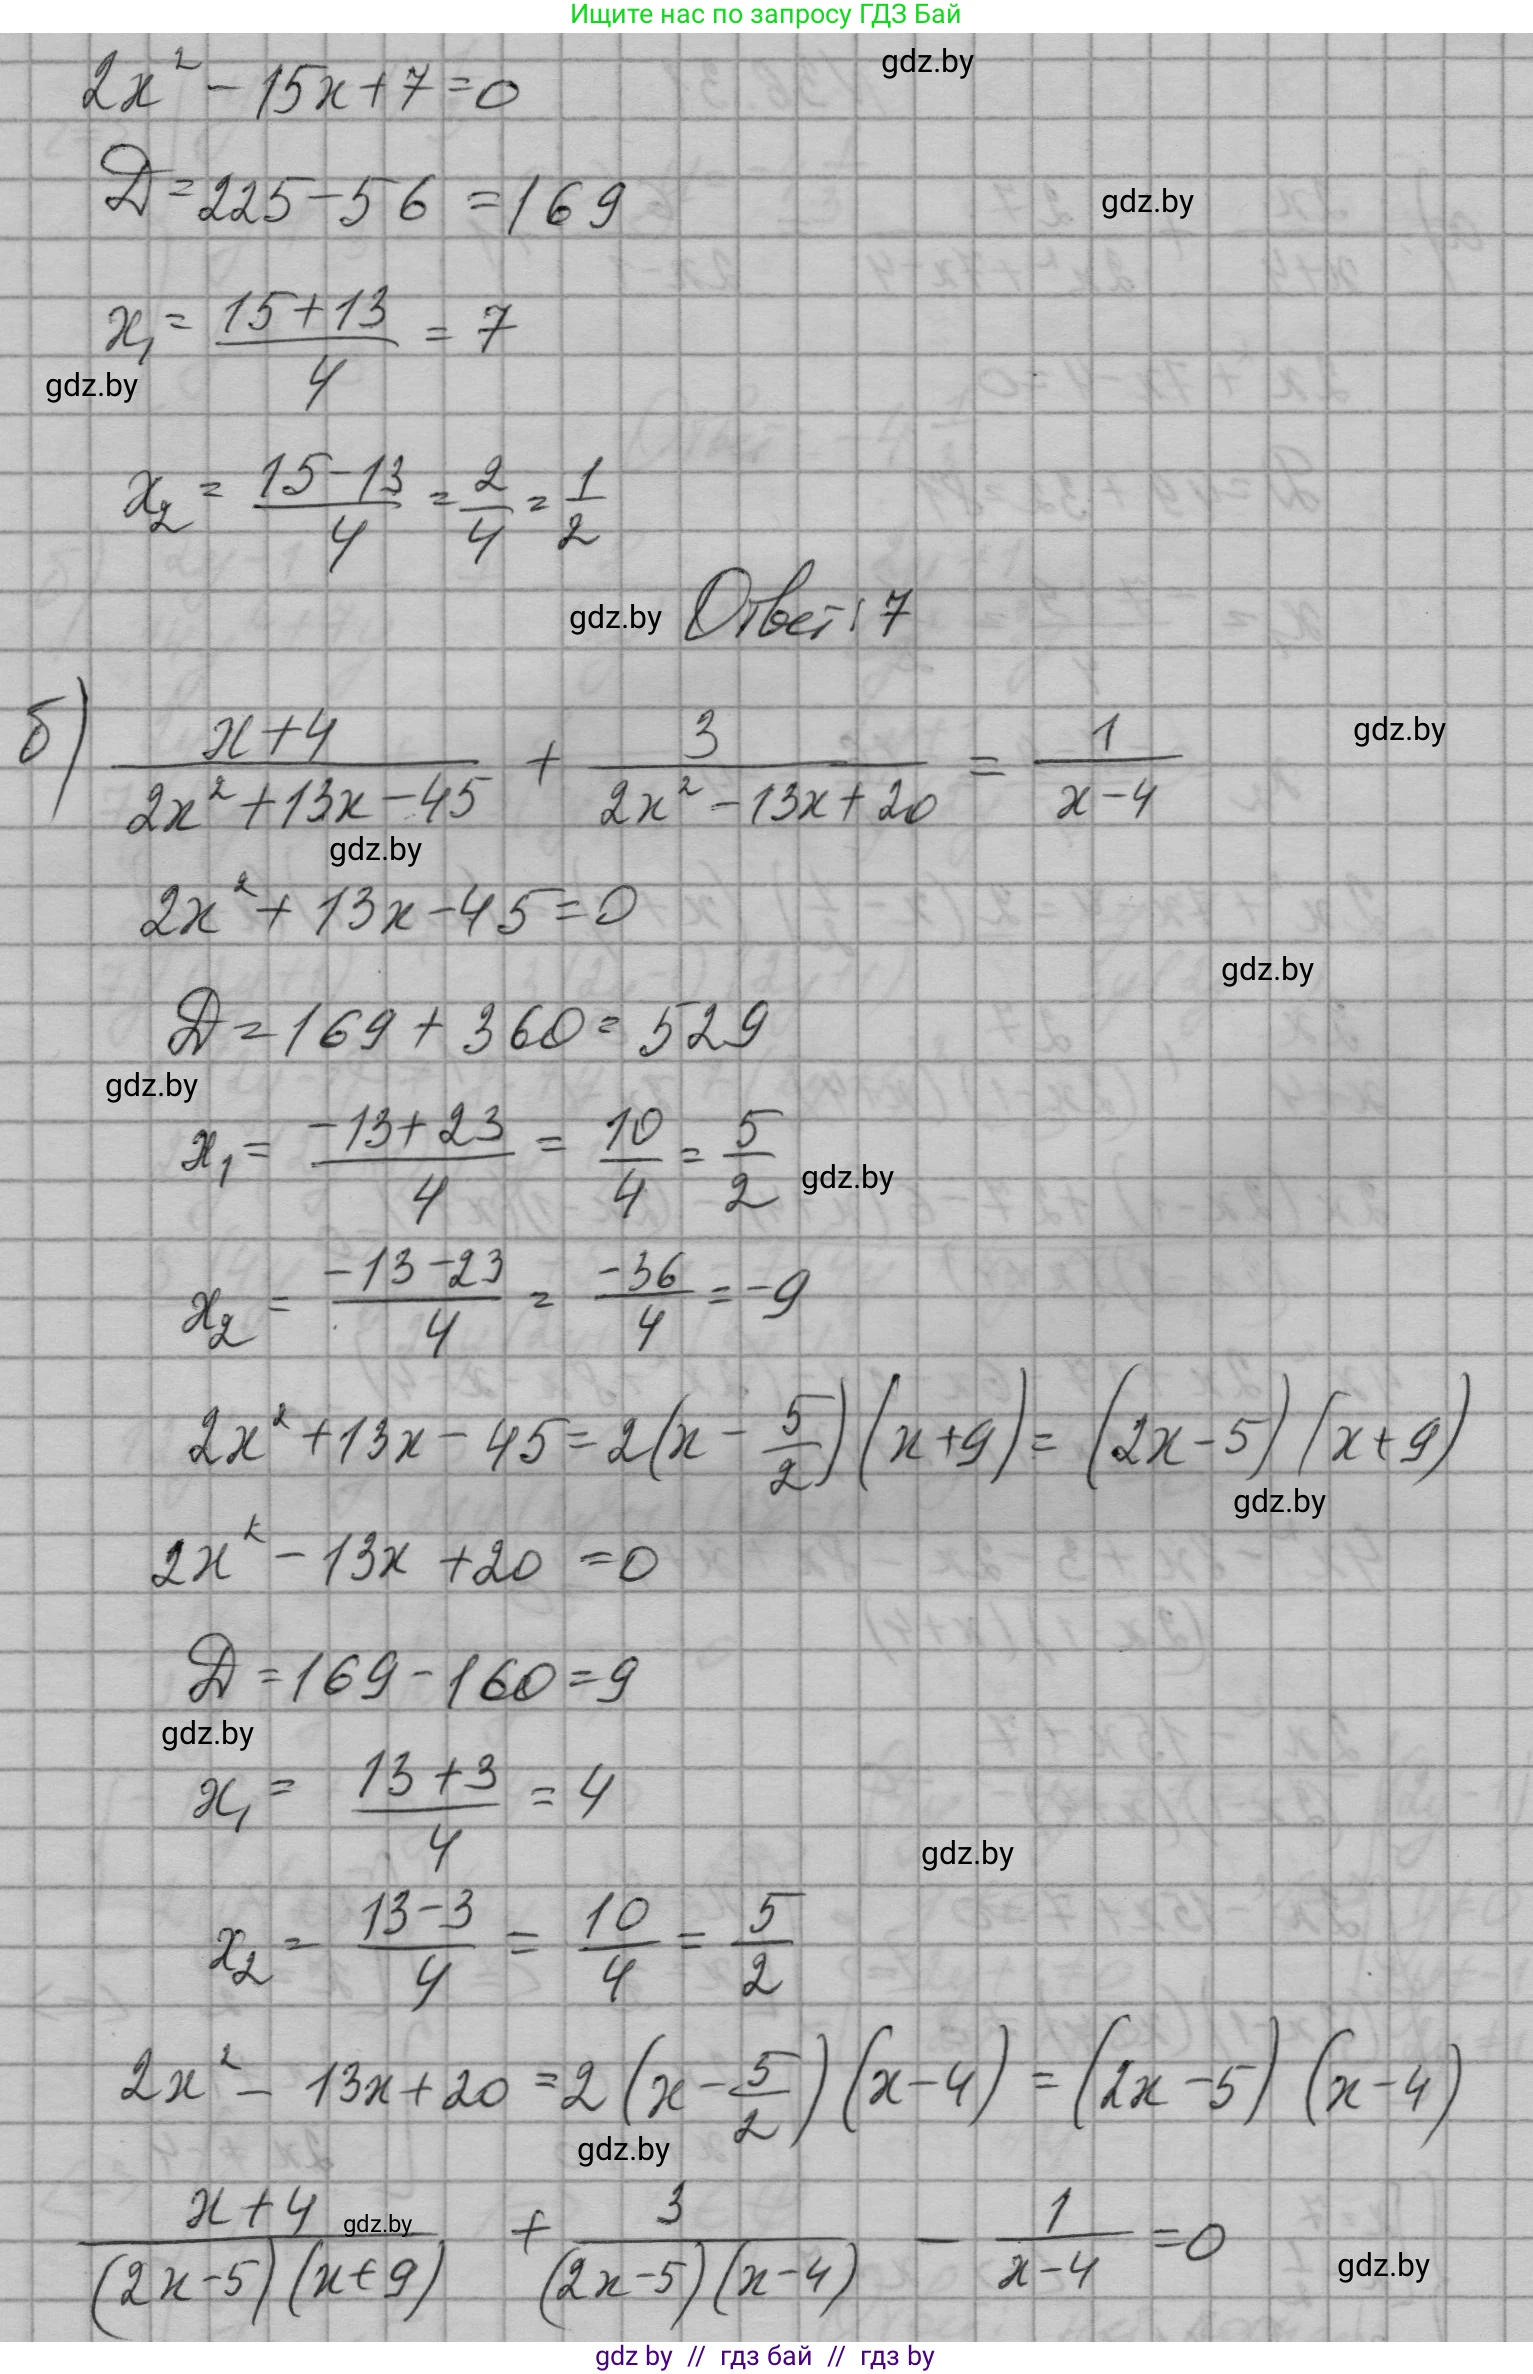 Ищите нас по запросу ГДЗ Бай
2x² - 15x + 7 = 0
gdz.by
D = 225 - 56 = 169
gdz.by
x₁ = (15 + 13)/4 = 7
gdz.by
x₂ = (15 - 13)/4 = 2/4 = 1/2
gdz.by Ответ: 7
б) (x + 4)/(2x² + 13x - 45) + 3/(2x² - 13x + 20) = 1/(x - 4)
gdz.by
gdz.by
2x² + 13x - 45 = 0
gdz.by
D = 169 + 360 = 529
gdz.by
x₁ = (-13 + 23)/4 = 10/4 = 5/2
gdz.by
x₂ = (-13 - 23)/4 = -36/4 = -9
2x² + 13x - 45 = 2(x - 5/2)(x + 9) = (2x - 5)(x + 9)
gdz.by
2x² - 13x + 20 = 0
D = 169 - 160 = 9
gdz.by
x₁ = (13 + 3)/4 = 4
gdz.by
x₂ = (13 - 3)/4 = 10/4 = 5/2
2x² - 13x + 20 = 2(x - 5/2)(x - 4) = (2x - 5)(x - 4)
gdz.by
(x + 4)/((2x - 5)(x + 9)) + 3/((2x - 5)(x - 4)) - 1/(x - 4) = 0
gdz.by
gdz.by
gdz by // гдз бай // гдз by